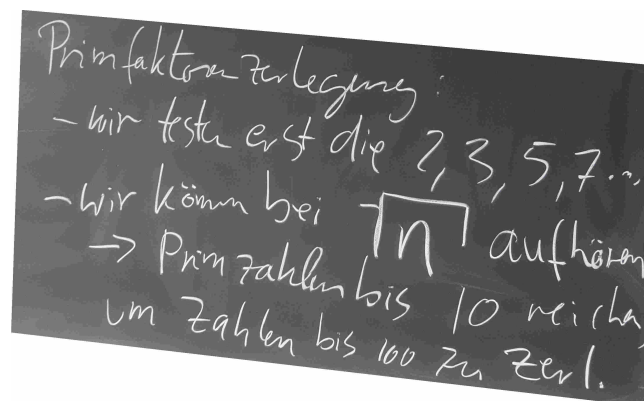 Primfaktorenzerlegung:
- wir testen erst die 2, 3, 5, 7...,
- wir können bei √n aufhören
→ Primzahlen bis 10 reichen,
um Zahlen bis 100 zu zerl.